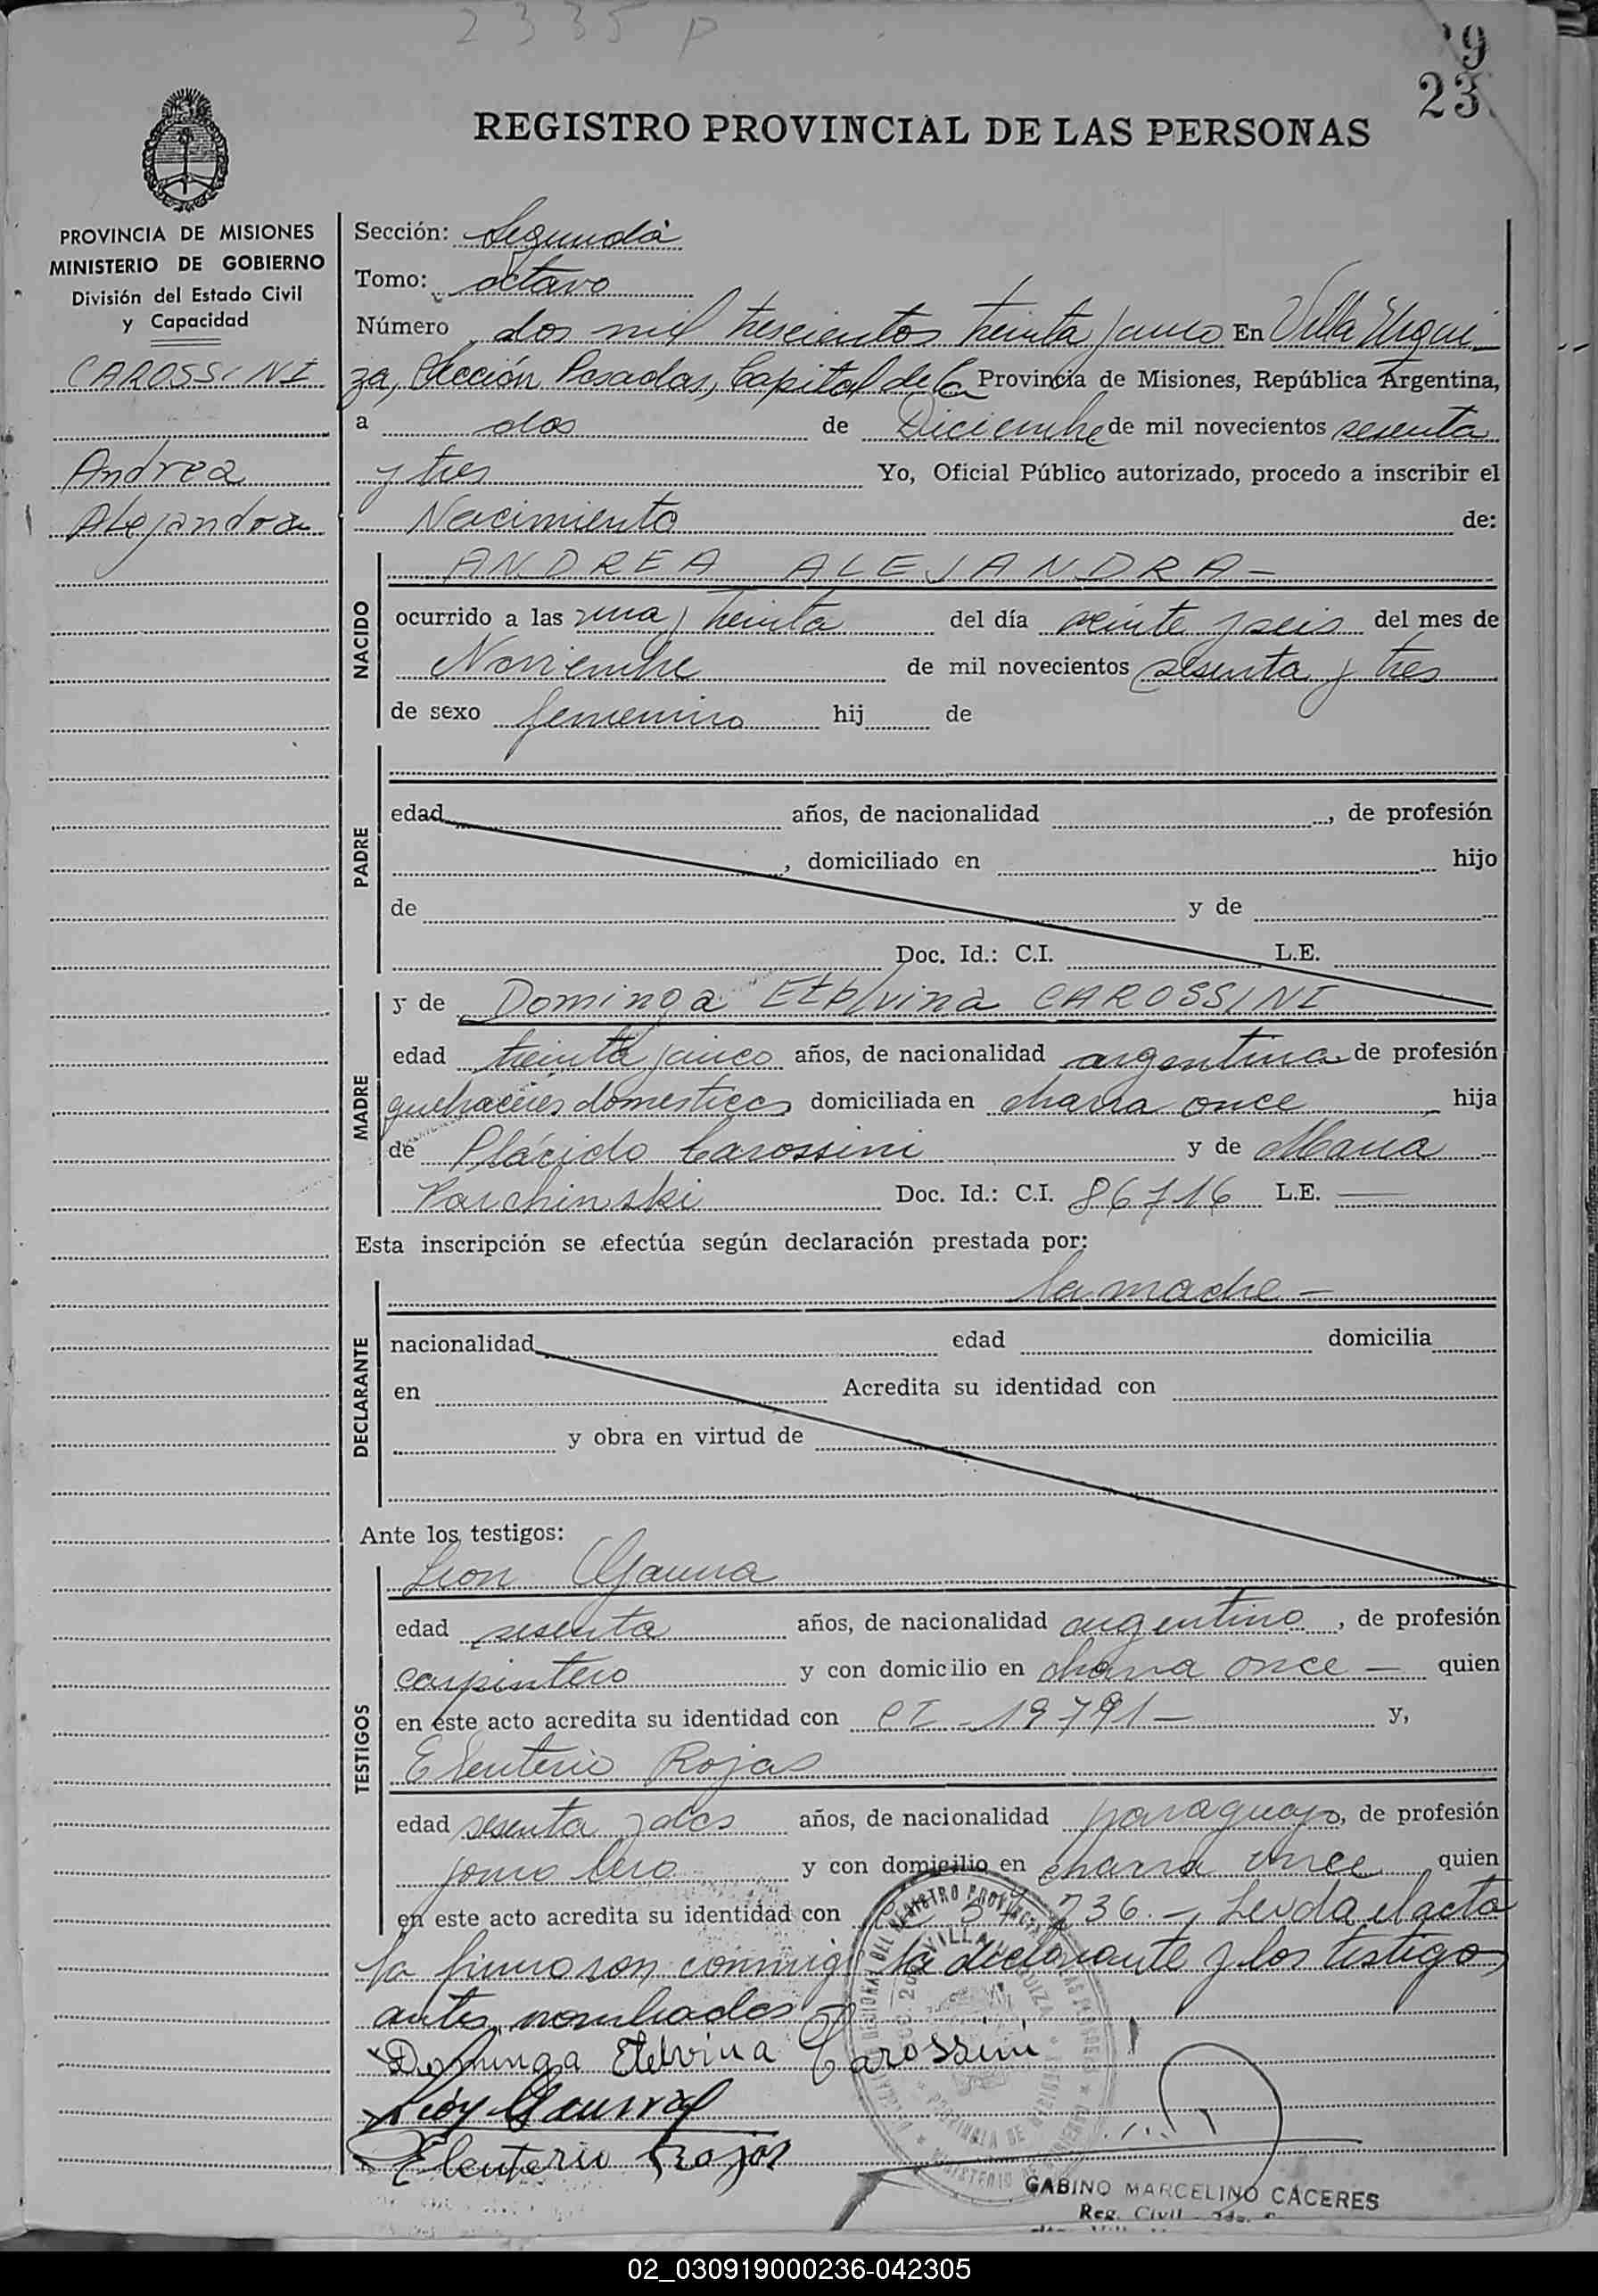 2335 P
9
23
REGISTRO PROVINCIAL DE LAS PERSONAS
PROVINCIA DE MISIONES
MINISTERIO DE GOBIERNO
División del Estado Civil
y Capacidad
CAROSSINI
Andrea
Alejandra
Sección: Segunda
Tomo: octavo
Número dos mil trescientos treinta y cinco En Villa Urqui-
za, Sección Posadas, Capital de la Provincia de Misiones, República Argentina,
a dos de Diciembre de mil novecientos sesenta
y tres Yo, Oficial Público autorizado, procedo a inscribir el
Nacimiento de:
NACIDO
ANDREA ALEJANDRA-
ocurrido a las una y treinta del día veinte y seis del mes de
Noviembre de mil novecientos sesenta y tres
de sexo femenino hij de
PADRE
edad años, de nacionalidad , de profesión
, domiciliado en hijo
de y de
Doc. Id.: C.I. L.E.
MADRE
y de Dominga Etelvina CAROSSINI
edad treinta y cinco años, de nacionalidad argentina de profesión
quehaceres domesticos domiciliada en chacra once hija
de Plácido Carossini y de Maria
Parchinski Doc. Id.: C.I. 86716 L.E. —
Esta inscripción se efectúa según declaración prestada por:
la madre -
DECLARANTE
nacionalidad edad domicilia
en Acredita su identidad con
y obra en virtud de
Ante los testigos:
TESTIGOS
Leon Gauna
edad sesenta años, de nacionalidad argentino , de profesión
carpintero y con domicilio en chacra once - quien
en este acto acredita su identidad con CI - 19791 - y,
Eleuterio Rojas
edad sesenta y dos años, de nacionalidad paraguayo, de profesión
jornalero y con domicilio en chacra once quien
en este acto acredita su identidad con 236. - Leida el acta
la firmaron conmigo la declarante y los testigos
antes nombrados
Dominga Etelvina Carossini
León Gauna
Eleuterio Rojas
GABINO MARCELINO CACERES
Reg. Civil
02_030919000236-042305